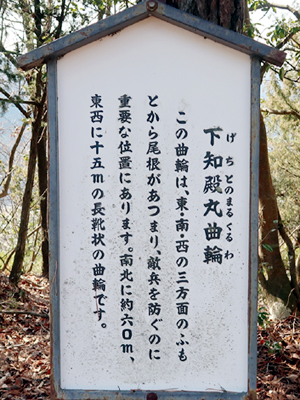 げちとのまるぐるわ
下知殿丸曲輪
この曲輪は、東・南・西の三方面のふも
とから尾根があつまり、敵兵を防ぐのに
重要な位置にあります。南北に約六〇m、
東西に十五mの長靴状の曲輪です。